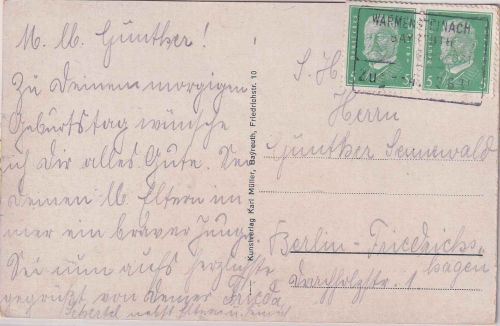 M. lb. Günther!
Zu Deinem morgigen
Geburtstag wünsche
ich Dir alles Gute. Sei
Deinen lb Eltern im
mer ein braver Junge.
Sei nun aufs herzlichste
gegrüßt von Deiner Frieda,
nebst Eltern u.
Kunstverlag Karl Müller, Bayreuth, Friedrichstr. 10
WARMENSTEINACH
BAYREUTH
Zug
5
5
S. H.
Herrn
Günther Sennewald
Berlin-Friedrichs
hagen
1